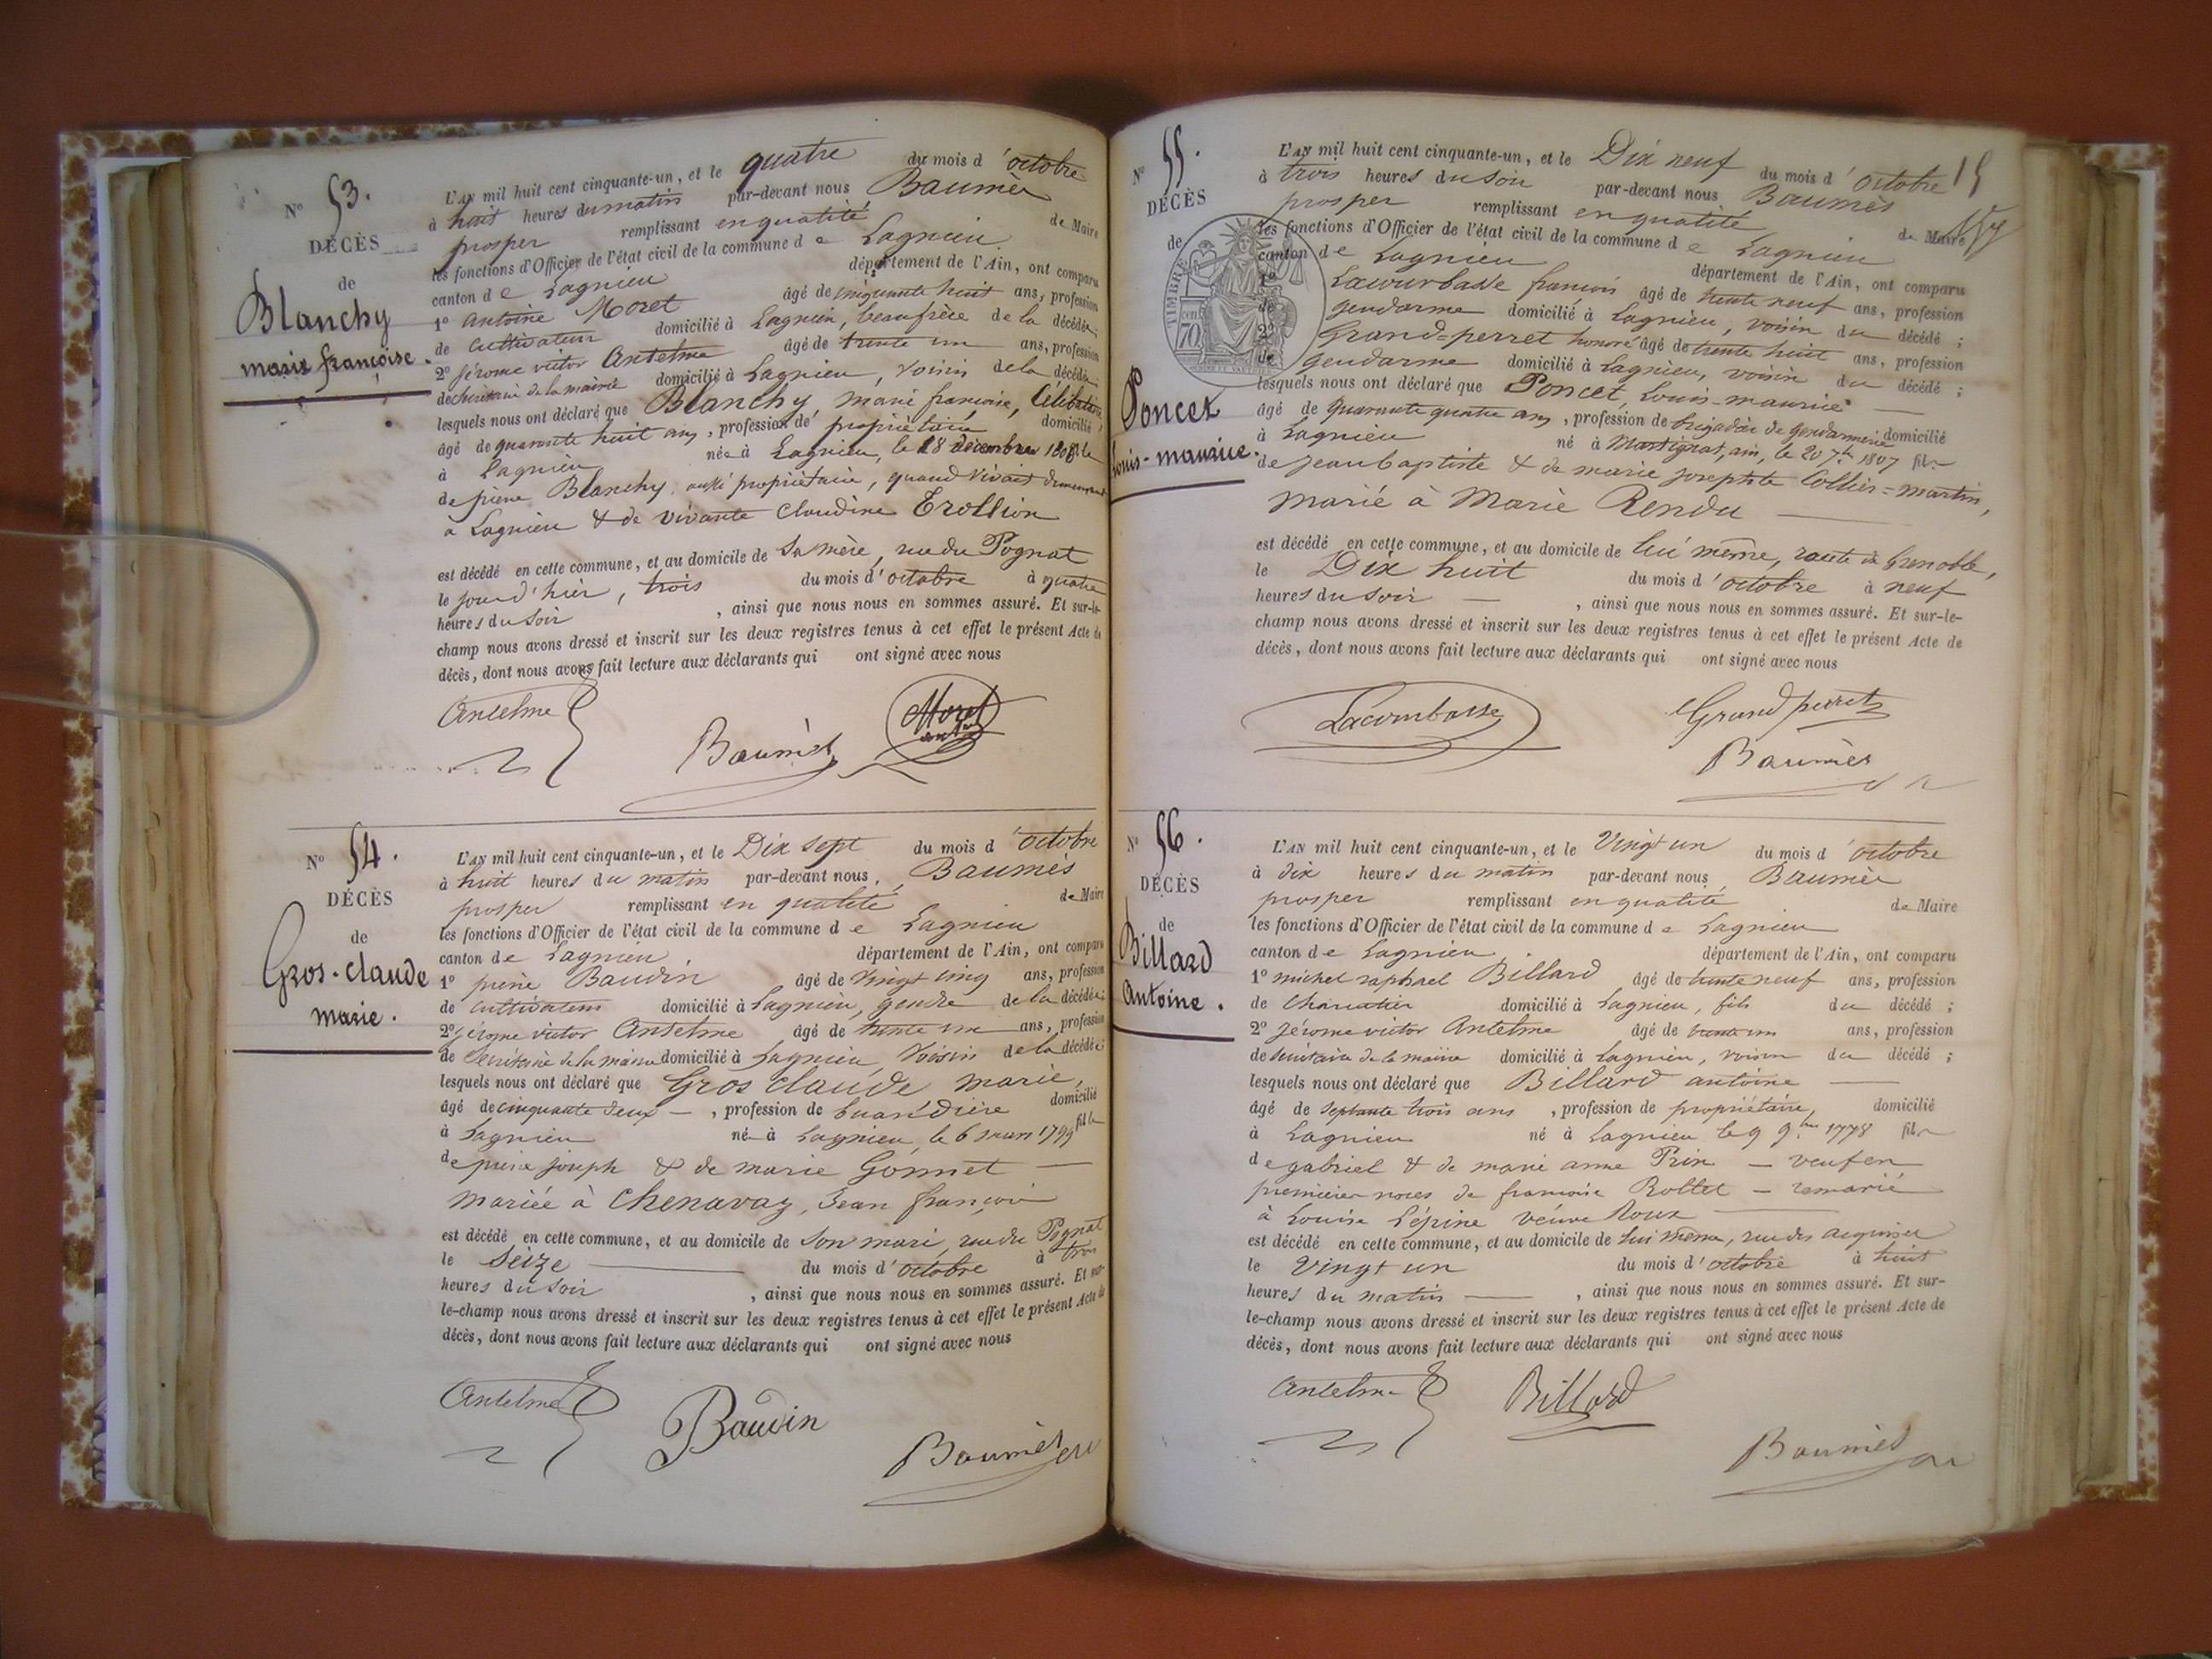 N° 53.
DÉCÈS
de
Blanchy
marie françoise.
L'AN mil huit cent cinquante-un, et le quatre du mois d'octobre
à huit heures du matin par-devant nous Baumès
prosper remplissant en qualité de Maire
les fonctions d'Officier de l'état civil de la commune de Lagnieu
canton de Lagnieu département de l'Ain, ont comparu
1° antoine Moret âgé de cinquante huit ans, profession
de cultivateur domicilié à Lagnieu, beaufrère de la décédée;
2° Jérome victor Antelme âgé de trente un ans, profession
de secrétaire de la mairie domicilié à Lagnieu, voisin de la décédée;
lesquels nous ont déclaré que Blanchy, marie françoise, Célibataire,
âgé de quarante huit ans, profession de propriétaire domicilié
à Lagnieu née à Lagnieu, le 18 décembre fille
de pierre Blanchy, aussi propriétaire, quand vivait demeurant
a Lagnieu & de vivante Claudine Trollion
est décédé en cette commune, et au domicile de sa mère, rue du Pognat
le jour d'hier, trois du mois d'octobre à quatre
heures du soir, ainsi que nous nous en sommes assuré. Et sur-le-
champ nous avons dressé et inscrit sur les deux registres tenus à cet effet le présent Acte de
décès, dont nous avons fait lecture aux déclarants qui ont signé avec nous
Antelme Baumès Moret
N° 54.
DÉCÈS
de
Gros-claude
marie.
L'AN mil huit cent cinquante-un, et le Dix sept du mois d'octobre
à huit heures du matin par-devant nous, Baumès
prosper remplissant en qualité de Maire
les fonctions d'Officier de l'état civil de la commune de Lagnieu
canton de Lagnieu département de l'Ain, ont comparu
1° pierre Baudin âgé de vingt cinq ans, profession
de cultivateur domicilié à Lagnieu, gendre de la décédée;
2° jérome victor Antelme âgé de trente un ans, profession
de Secrétaire de la mairie domicilié à Lagnieu, Voisin de la décédée;
lesquels nous ont déclaré que Gros claude marie,
âgé de cinquante deux —, profession de buandière domicilié
à Lagnieu née à Lagnieu, le 6 mars 1799 fille
de pierre joseph & de marie Gonnet —
mariée à Chenavaz, Jean françois
est décédé en cette commune, et au domicile de son mari, rue du Pognat
le Seize — du mois d'octobre à trois
heures du soir, ainsi que nous nous en sommes assuré. Et sur-
le-champ nous avons dressé et inscrit sur les deux registres tenus à cet effet le présent Acte de
décès, dont nous avons fait lecture aux déclarants qui ont signé avec nous
Antelme Baudin Baumès
15
N° 55.
DÉCÈS
de
Poncet
Louis-maurice.
TIMBRE
70
L'AN mil huit cent cinquante-un, et le Dix neuf du mois d'octobre
à trois heures du soir par-devant nous Baumès
prosper remplissant en qualité de Maire
les fonctions d'Officier de l'état civil de la commune de Lagnieu
canton de Lagnieu département de l'Ain, ont comparu
1° Lacourbasse françois âgé de trente neuf ans, profession
de gendarme domicilié à Lagnieu, voisin du décédé;
2° Grand-perret honoré âgé de trente huit ans, profession
de gendarme domicilié à Lagnieu, voisin du décédé;
lesquels nous ont déclaré que Poncet, Louis-maurice —
âgé de quarante quatre ans, profession de brigadier de gendarmerie domicilié
à Lagnieu né à Martignat, ain, le 20 7bre 1807 fils
de jean baptiste & de marie josephte Collier=martin,
marié à Marie Rendu —
est décédé en cette commune, et au domicile de lui même, route de Grenoble,
le Dix huit du mois d'octobre à neuf
heures du soir —, ainsi que nous nous en sommes assuré. Et sur-le-
champ nous avons dressé et inscrit sur les deux registres tenus à cet effet le présent Acte de
décès, dont nous avons fait lecture aux déclarants qui ont signé avec nous
Lacombasse Grandperret
Baumès
N° 56.
DÉCÈS
de
Billard
Antoine.
L'AN mil huit cent cinquante-un, et le Vingt un du mois d'octobre
à dix heures du matin par-devant nous Baumès
prosper remplissant en qualité de Maire
les fonctions d'Officier de l'état civil de la commune de Lagnieu
canton de Lagnieu département de l'Ain, ont comparu
1° michel raphael Billard âgé de trente neuf ans, profession
de Charcutier domicilié à Lagnieu, fils du décédé;
2° Jérome victor Antelme âgé de trente un ans, profession
de secrétaire de la mairie domicilié à Lagnieu, voisin du décédé;
lesquels nous ont déclaré que Billard antoine —
âgé de septante trois ans, profession de propriétaire, domicilié
à Lagnieu né à Lagnieu le 9 9bre 1778 fils
de gabriel & de marie anne Prin — veuf en
premières noces de françoise Rollet — remarié
à Louise Lépine veuve Roux —
est décédé en cette commune, et au domicile de lui même, rue des
le Vingt un du mois d'octobre à huit
heures du matin —, ainsi que nous nous en sommes assuré. Et sur-
le-champ nous avons dressé et inscrit sur les deux registres tenus à cet effet le présent Acte de
décès, dont nous avons fait lecture aux déclarants qui ont signé avec nous
Antelme Billard
Baumès